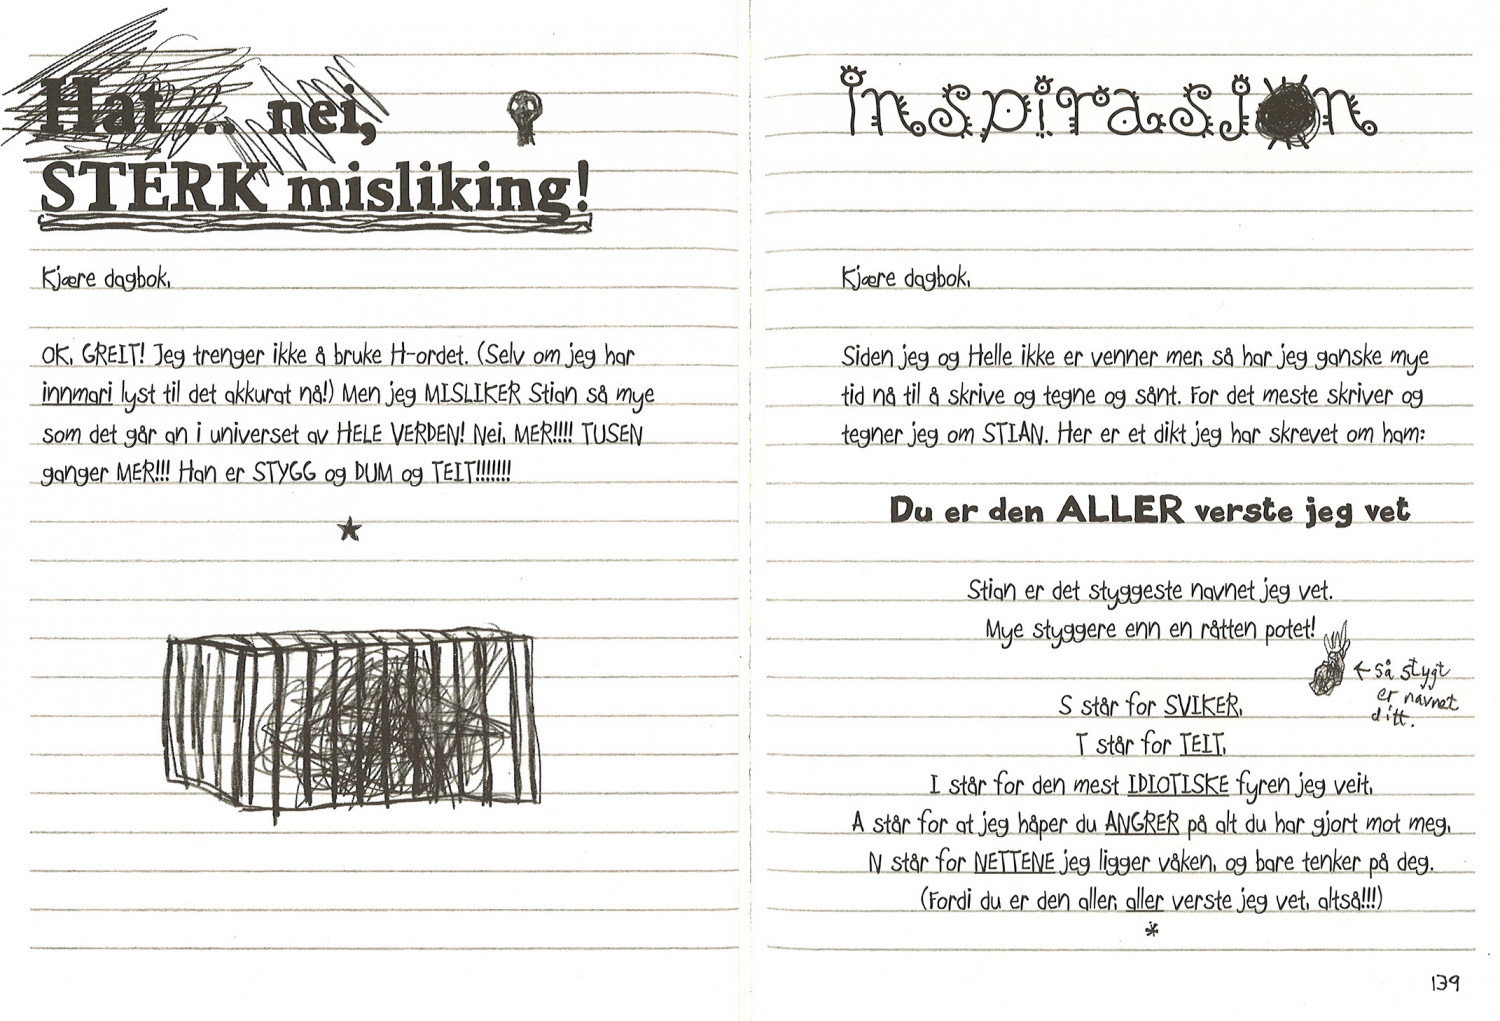 Hat ... nei,
STERK misliking!
Kjære dagbok,
OK, GREIT! Jeg trenger ikke å bruke H-ordet. (Selv om jeg har
innmari lyst til det akkurat nå!) Men jeg MISLIKER Stian så mye
som det går an i universet av HELE VERDEN! Nei, MER!!!! TUSEN
ganger MER!!! Han er STYGG og DUM og TEIT!!!!!!!
inspirasjon
Kjære dagbok,
Siden jeg og Helle ikke er venner mer, så har jeg ganske mye
tid nå til å skrive og tegne og sånt. For det meste skriver og
tegner jeg om STIAN. Her er et dikt jeg har skrevet om ham:
Du er den ALLER verste jeg vet
Stian er det styggeste navnet jeg vet.
Mye styggere enn en råtten potet!
← Så stygt
er navnet
ditt.
S står for SVIKER,
T står for TEIT,
I står for den mest IDIOTISKE fyren jeg veit,
A står for at jeg håper du ANGRER på alt du har gjort mot meg,
N står for NETTENE jeg ligger våken, og bare tenker på deg.
(Fordi du er den aller, aller verste jeg vet, altså!!!)
139